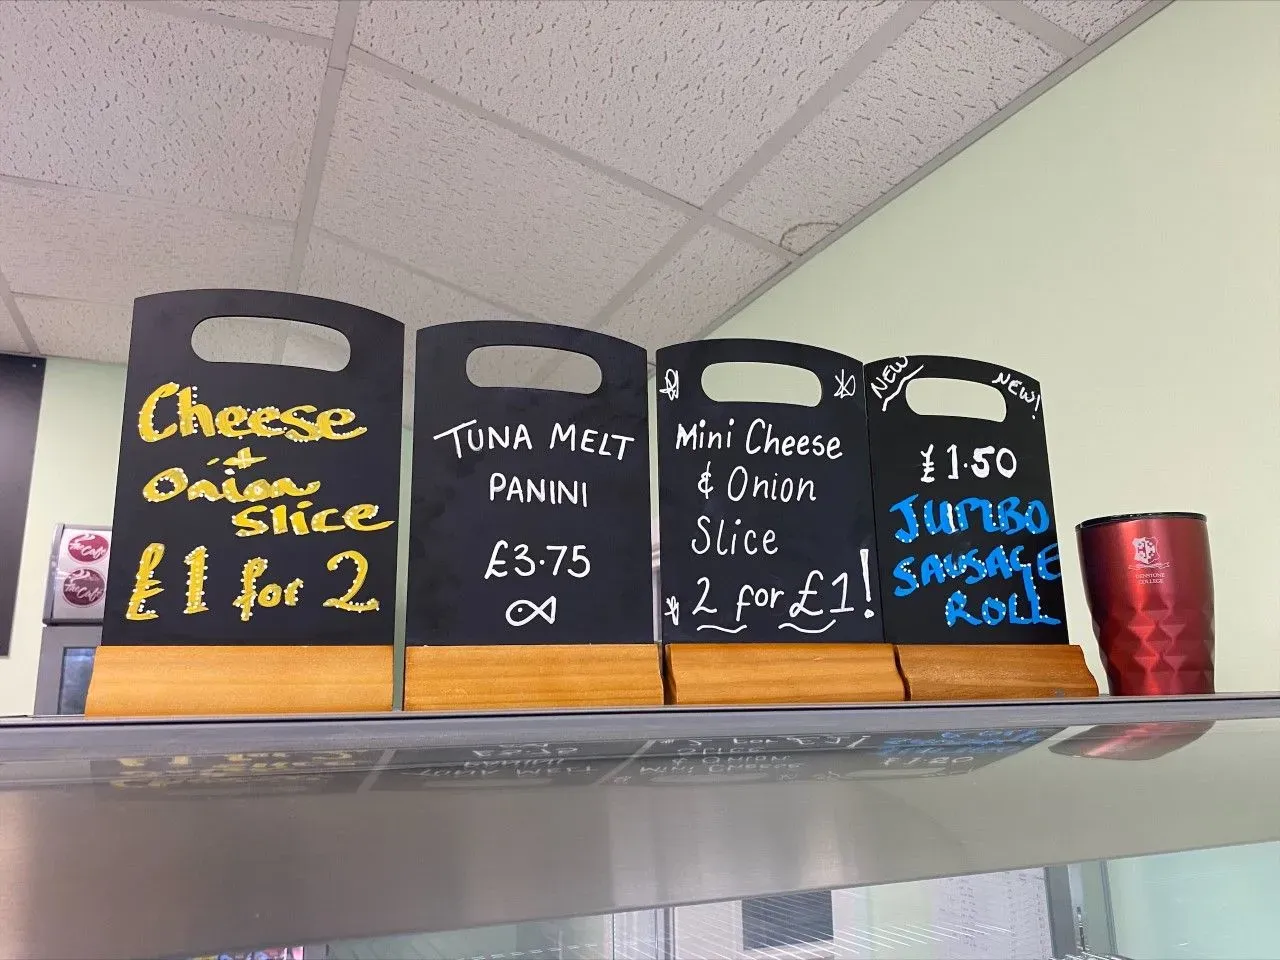 Cheese
+
Onion
Slice
£1 for 2
TUNA MELT
PANINI
£3.75
Mini Cheese
& Onion
Slice
2 for £1!
NEW
NEW!
£1.50
JUMBO
SAUSAGE
ROLL
DENSTONE
COLLEGE
The Café
The Café